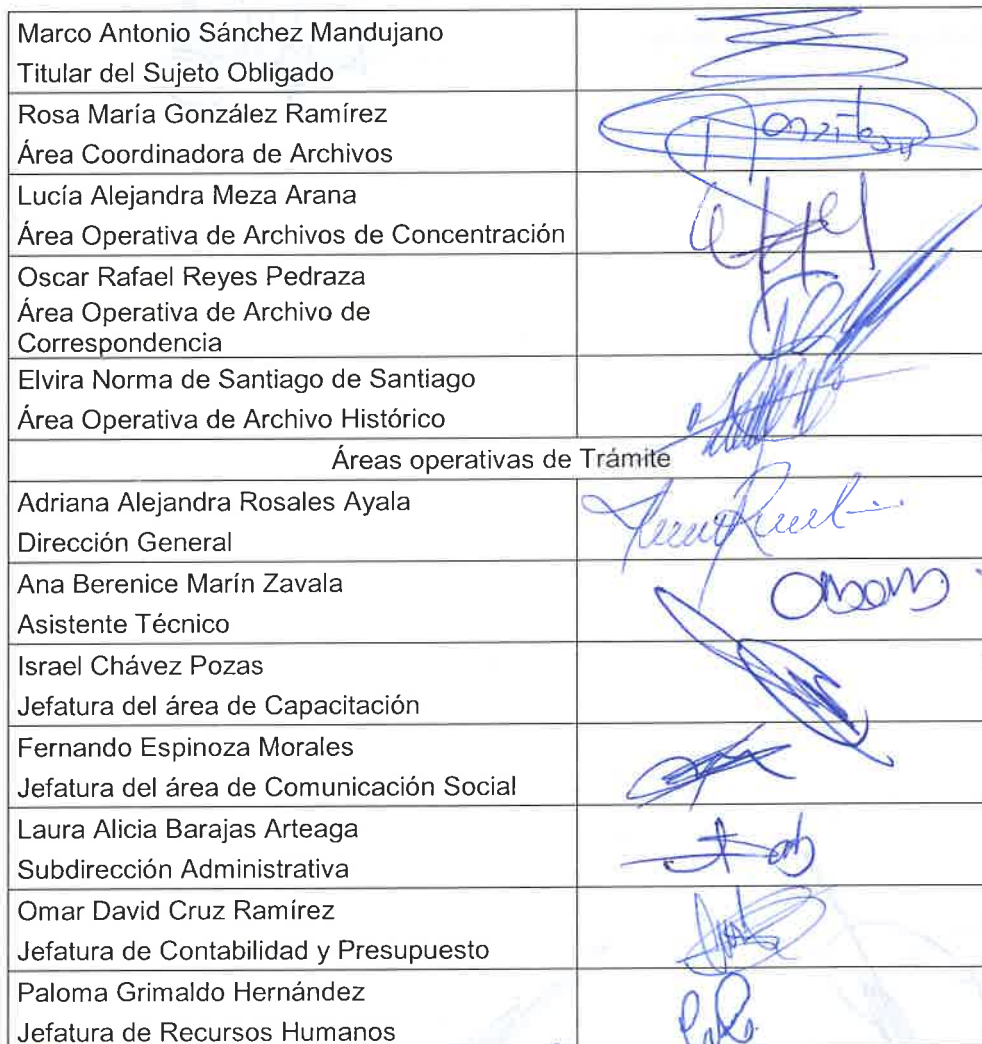 Marco Antonio Sánchez Mandujano
Titular del Sujeto Obligado
Rosa María González Ramírez
Área Coordinadora de Archivos
Lucía Alejandra Meza Arana
Área Operativa de Archivos de Concentración
Oscar Rafael Reyes Pedraza
Área Operativa de Archivo de
Correspondencia
Elvira Norma de Santiago de Santiago
Área Operativa de Archivo Histórico
Áreas operativas de Trámite
Adriana Alejandra Rosales Ayala
Dirección General
Ana Berenice Marín Zavala
Asistente Técnico
Israel Chávez Pozas
Jefatura del área de Capacitación
Fernando Espinoza Morales
Jefatura del área de Comunicación Social
Laura Alicia Barajas Arteaga
Subdirección Administrativa
Omar David Cruz Ramírez
Jefatura de Contabilidad y Presupuesto
Paloma Grimaldo Hernández
Jefatura de Recursos Humanos